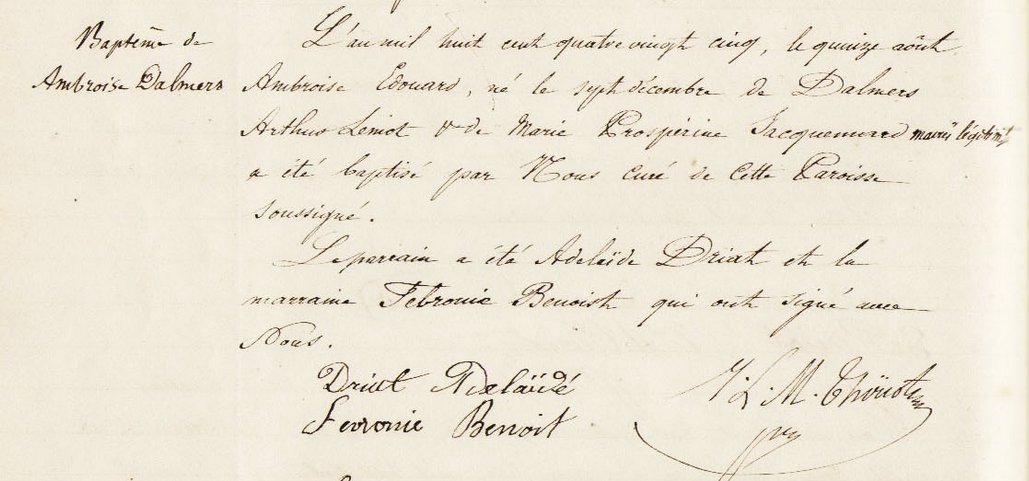 Baptême de
Ambroise Dalmers
L'an mil huit cent quatre vingt cinq, le quinze août
Ambroise Edouard, né le sept décembre de Dalmers
Arthus Leniot & de Marie Prospérine Jacquemard mariés légitimt
a été baptisé par Nous curé de cette Paroisse
soussigné.
Le parrain a été Adelaïde Driat et la
marraine Febronie Benoist qui ont signé avec
Nous.
Driut Adelaïdé
Fevronie Benoit
J. L. M. Thiriot